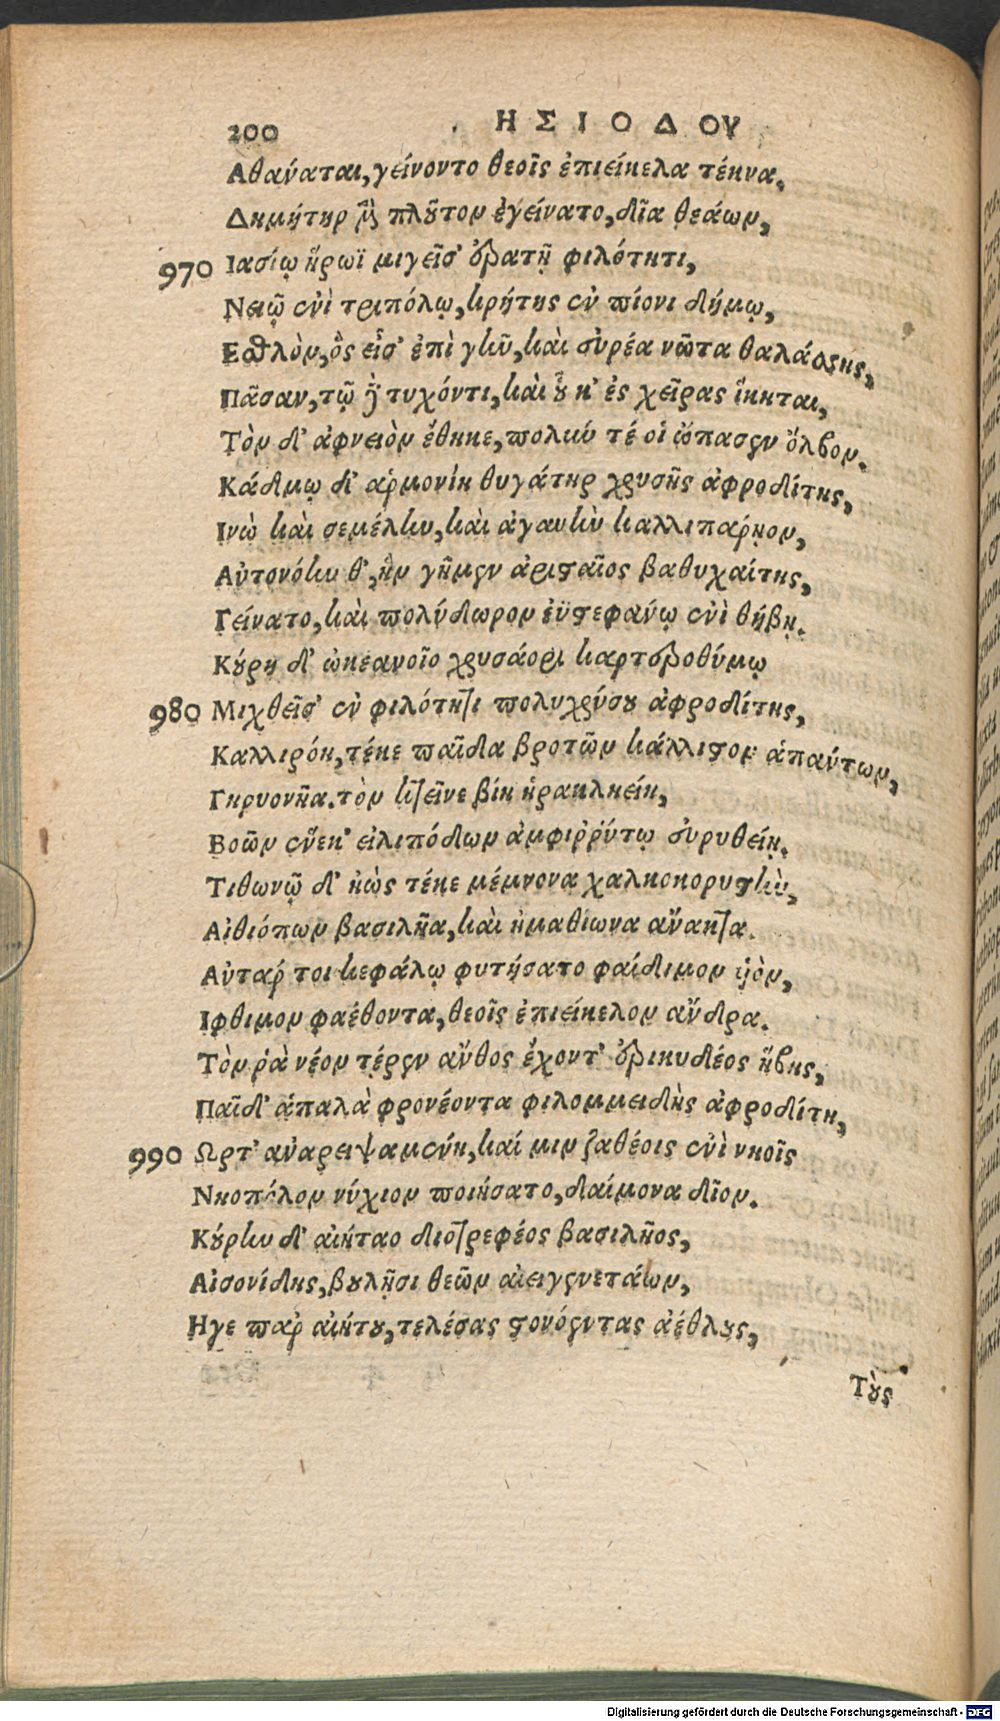 200 ΗΣΙΟΔΟΥ
Αθανάται, γείνοντο θεοῖς ἐπιείκελα τέκνα.
Δημήτηρ μὲν πλοῦτον ἐγείνατο, δῖα θεάων,
970 Ιασίῳ ἥρωϊ μιγεῖσ' ἐρατῇ φιλότητι,
Νειῷ ἐνὶ τριπόλῳ, κρήτης ἐν πίονι δήμῳ,
Εσθλὸν, ὃς εἶσ' ἐπὶ γῆν, καὶ εὐρέα νῶτα θαλάσσης,
Πᾶσαν, τῷ δὲ τυχόντι, καὶ οὗ κ' ἐς χεῖρας ἵκηται,
Τὸν δ' ἀφνειὸν ἔθηκε, πολὺν τέ οἱ ὤπασεν ὄλβον.
Κάδμῳ δ' ἁρμονίη θυγάτηρ χρυσῆς ἀφροδίτης,
Ινὼ καὶ σεμέλην, καὶ ἀγαυὴν καλλιπάρηον,
Αὐτονόην θ', ἣν γῆμεν ἀρισταῖος βαθυχαίτης,
Γείνατο, καὶ πολύδωρον ἐϋστεφάνῳ ἐνὶ θήβῃ.
Κούρη δ' ὠκεανοῖο χρυσάορι καρτεροθύμῳ
980 Μιχθεῖσ' ἐν φιλότητι πολυχρύσου ἀφροδίτης,
Καλλιρόη, τέκε παῖδα βροτῶν κάλλιστον ἁπάντων,
Γηρυονῆα. τὸν κτεῖνε βίη ἡρακληείη,
Βοῶν ἕνεκ' εἰλιπόδων ἀμφιῤῥύτῳ εὐρυθείῃ.
Τιθωνῷ δ' ἠὼς τέκε μέμνονα χαλκοκορυστὴν,
Αἰθιόπων βασιλῆα, καὶ ἠμαθίωνα ἄνακτα.
Αὐτάρ τοι κεφάλῳ φυτήσατο φαίδιμον υἱὸν,
Ιφθιμον φαέθοντα, θεοῖς ἐπιείκελον ἄνδρα.
Τὸν ῥὰ νέον τέρεν ἄνθος ἔχοντ' ἐρικυδέος ἥβης,
Παῖδ' ἁπαλὰ φρονέοντα φιλομμειδὴς ἀφροδίτη,
990 Ωρτ' ἀναρειψαμένη, καί μιν ζαθέοις ἐνὶ νηοῖς
Νηοπόλον νύχιον ποιήσατο, δαίμονα δῖον.
Κούρην δ' αἰήταο διοτρεφέος βασιλῆος,
Αἰσονίδης, βουλῇσι θεῶν αἰειγενετάων,
Ηγε παρ' αἰήτου, τελέσας στονόεντας ἀέθλους,
Τοὺς
Digitalisierung gefördert durch die Deutsche Forschungsgemeinschaft - DFG